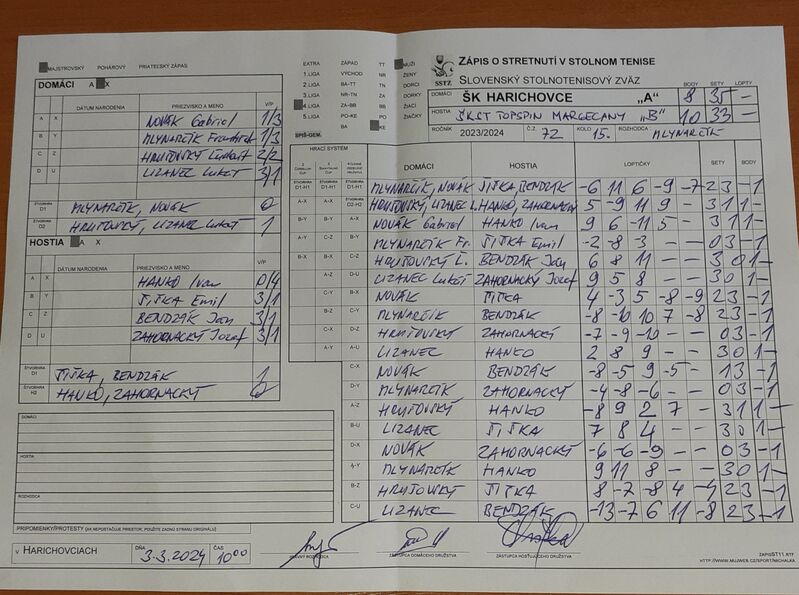 MAJSTROVSKÝ POHÁROVÝ PRIATEĽSKÝ ZÁPAS
DOMÁCI A X
DÁTUM NARODENIA PRIEZVISKO A MENO V/P
A X NOVÁK Gabriel 1/3
B Y MLYNARČÍK František 1/3
C Z HRUŠOVSKÝ Ľubomír 2/2
D U LIZANEC Lukáš 3/1
ŠTVORHRA D1 MLYNARČÍK, NOVÁK 0
ŠTVORHRA D2 HRUŠOVSKÝ, LIZANEC Lukáš 1
HOSTIA A X
DÁTUM NARODENIA PRIEZVISKO A MENO V/P
A X HANKO Ivan 0/4
B Y ŠIŠKA Emil 3/1
C Z BENDZÁK Ján 3/1
D U ZAHORNACKÝ Jozef 3/1
ŠTVORHRA D1 ŠIŠKA, BENDZÁK 1
ŠTVORHRA H2 HANKO, ZAHORNACKÝ 0
DOMÁCI
HOSTIA
ROZHODCA
PRIPOMIENKY/PROTESTY (AK NEPOSTAČUJE PRIESTOR, POUŽITE ZADNÚ STRANU ORIGINÁLU)
V HARICHOVCIACH DŇA 3.3.2024 ČAS 10:00
EXTRA ZÁPAD TT MUŽI
1.LIGA VÝCHOD NR ŽENY
2.LIGA BA-TT TN DORCI
3.LIGA NR-TN ZA DORKY
4.LIGA ZA-BB BB ŽIACI
5.LIGA PO-KE PO ŽIAČKY
BA KE
SPIŠ-GEM.
SSTZ
ZÁPIS O STRETNUTÍ V STOLNOM TENISE
SLOVENSKÝ STOLNOTENISOVÝ ZVÄZ
BODY SETY LOPTY
DOMÁCI ŠK HARICHOVCE „A" 8 35 -
HOSTIA ŠKST TOPSPIN MARGECANY „B" 10 33 -
ROČNÍK 2023/2024 Č.Z. 72 KOLO 15. ROZHODCA: MLYNARČÍK
HRACÍ SYSTÉM DOMÁCI HOSTIA LOPTIČKY SETY BODY
D1-H1 D1-H1 D1-H1 MLYNARČÍK, NOVÁK ŠIŠKA, BENDZÁK -6 11 6 -9 -7 2 3 - 1
A-X A-X D2-H2 HRUŠOVSKÝ, LIZANEC L. HANKO, ZAHORNACKÝ 5 -9 11 9 - 3 1 1 -
B-Y B-Y A-X NOVÁK Gabriel HANKO Ivan 9 6 -11 5 - 3 1 1 -
A-Y C-Z B-Y MLYNARČÍK Fr. ŠIŠKA Emil -2 -8 -3 - - 0 3 - 1
B-X B-X C-Z HRUŠOVSKÝ Ľ. BENDZÁK Ján 6 8 11 - - 3 0 1 -
A-Z D-U LIZANEC Lukáš ZAHORNACKÝ Jozef 9 5 8 - - 3 0 1 -
C-Y B-X NOVÁK ŠIŠKA 4 -3 5 -8 -9 2 3 - 1
B-Z C-Y MLYNARČÍK BENDZÁK -8 -6 10 7 -8 2 3 - 1
C-X D-Z HRUŠOVSKÝ ZAHORNACKÝ -7 -9 -10 - - 0 3 - 1
A-Y A-U LIZANEC HANKO 2 8 9 - - 3 0 1 -
C-X NOVÁK BENDZÁK -8 -5 9 -5 - 1 3 - 1
D-Y MLYNARČÍK ZAHORNACKÝ -4 -8 -6 - - 0 3 - 1
A-Z HRUŠOVSKÝ HANKO -8 9 2 7 - 3 1 1 -
B-U LIZANEC ŠIŠKA 7 8 4 - - 3 0 1 -
D-X NOVÁK ZAHORNACKÝ -6 -6 -9 - - 0 3 - 1
A-Y MLYNARČÍK HANKO 9 11 8 - - 3 0 1 -
B-Z HRUŠOVSKÝ ŠIŠKA 8 -7 -8 4 -9 2 3 - 1
C-U LIZANEC BENDZÁK -13 -7 6 11 -8 2 3 - 1
HLAVNÝ ROZHODCA ZÁSTUPCA DOMÁCEHO DRUŽSTVA ZÁSTUPCA HOSŤUJÚCEHO DRUŽSTVA
ZAPISST11.RTF
HTTP://WWW.MUJWEB.CZ/SPORT/MICHALKA